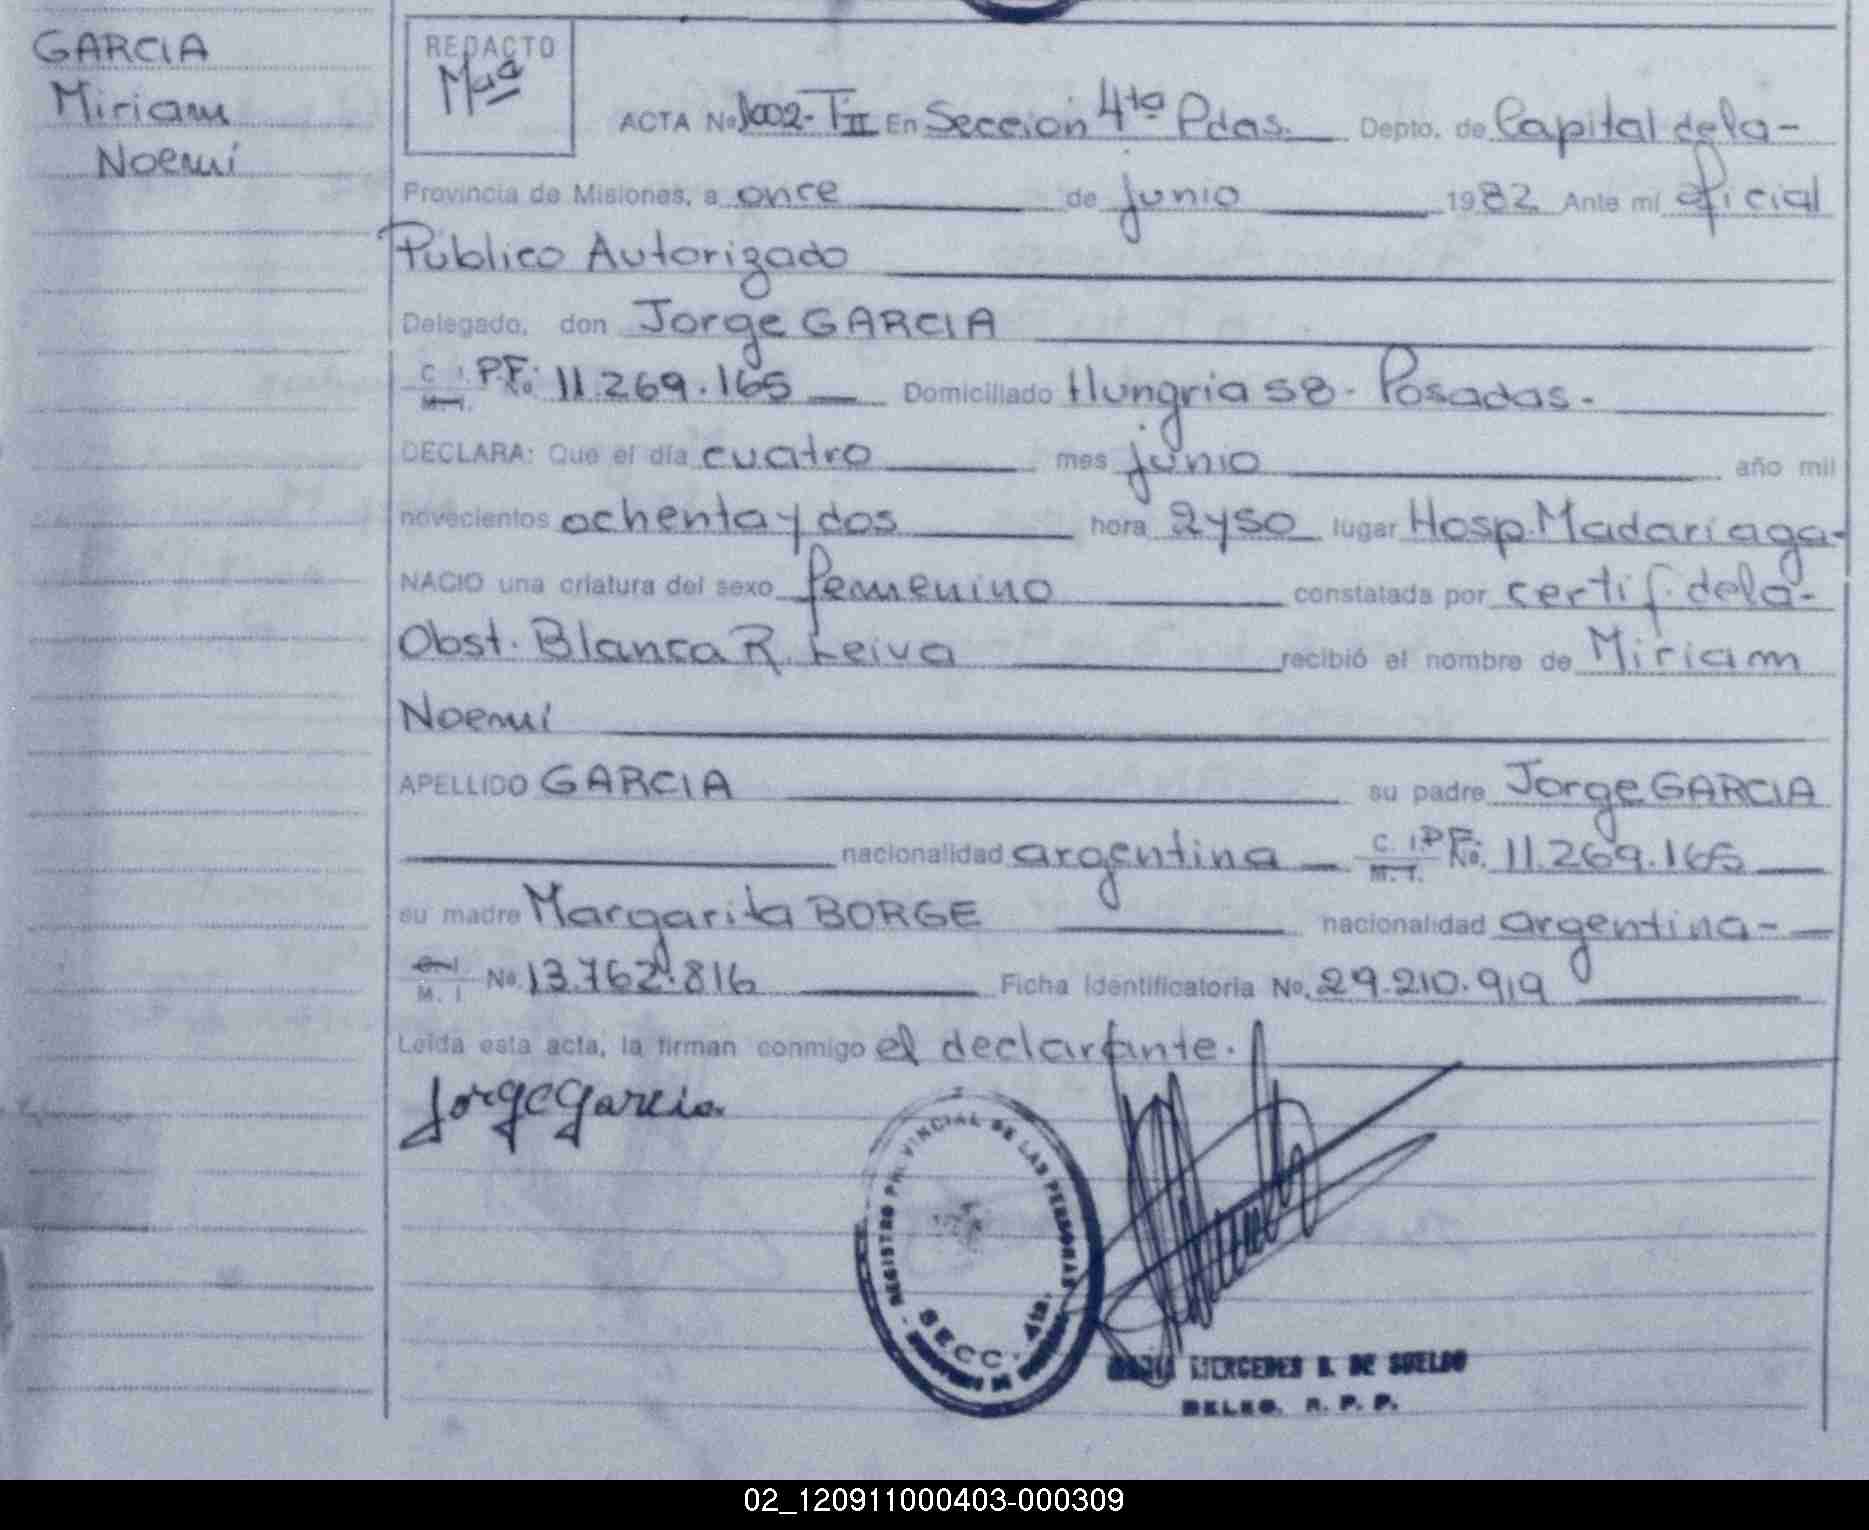 GARCIA
Miriam
Noemí
REDACTO
Mª
ACTA Nº 1002-TII En Sección 4ta Pdas. Depto. de Capital de la-
Provincia de Misiones, a once de junio 1982 Ante mí oficial
Público Autorizado
Delegado, don Jorge GARCIA
C. I. P.F. No. 11.269.165 Domiciliado Hungria 58 - Posadas.-
M. I.
DECLARA: Que el día cuatro mes junio año mil
novecientos ochenta y dos hora 2y50 lugar Hosp. Madariaga-
NACIO una criatura del sexo femenino constatada por certif. de la-
Obst. Blanca R. Leiva recibió el nombre de Miriam
Noemí
APELLIDO GARCIA su padre Jorge GARCIA
nacionalidad argentina C. I. P.F. No. 11.269.165
M. I.
su madre Margarita BORGE nacionalidad argentina-
C. I. No. 13.762.816 Ficha Identificatoria No. 29.210.919
M. I
Leída esta acta, la firman conmigo el declarante.
Jorge Garcia
REGISTRO PROVINCIAL DE LAS PERSONAS
SECC. 4ta.
MERCEDES B. DE SUELDO
DELEG. R. P. P.
02_120911000403-000309